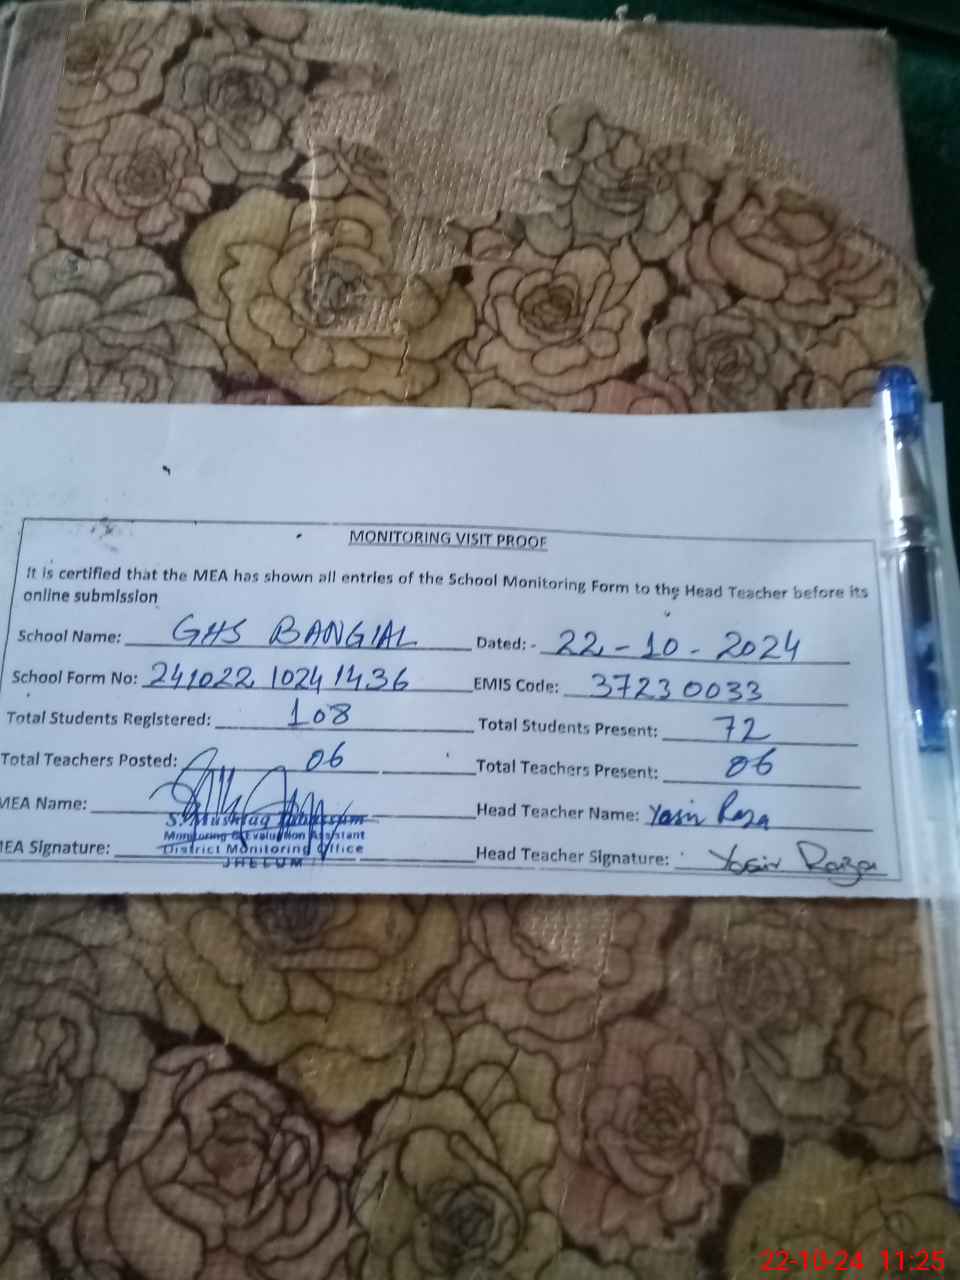 MONITORING VISIT PROOF
It is certified that the MEA has shown all entries of the School Monitoring Form to the Head Teacher before its
online submission
School Name: GHS BANGIAL Dated: - 22-10-2024
School Form No: 241022 1024 1436 EMIS Code: 37230033
Total Students Registered: 108 Total Students Present: 72
Total Teachers Posted: 06 Total Teachers Present: 06
MEA Name: Head Teacher Name: Yasir Raza
S. Mushtaq
Monitoring & Evaluation Assistant
MEA Signature: District Monitoring Office Head Teacher Signature: Yasir Raza
JHELUM
22-10-24 11:25